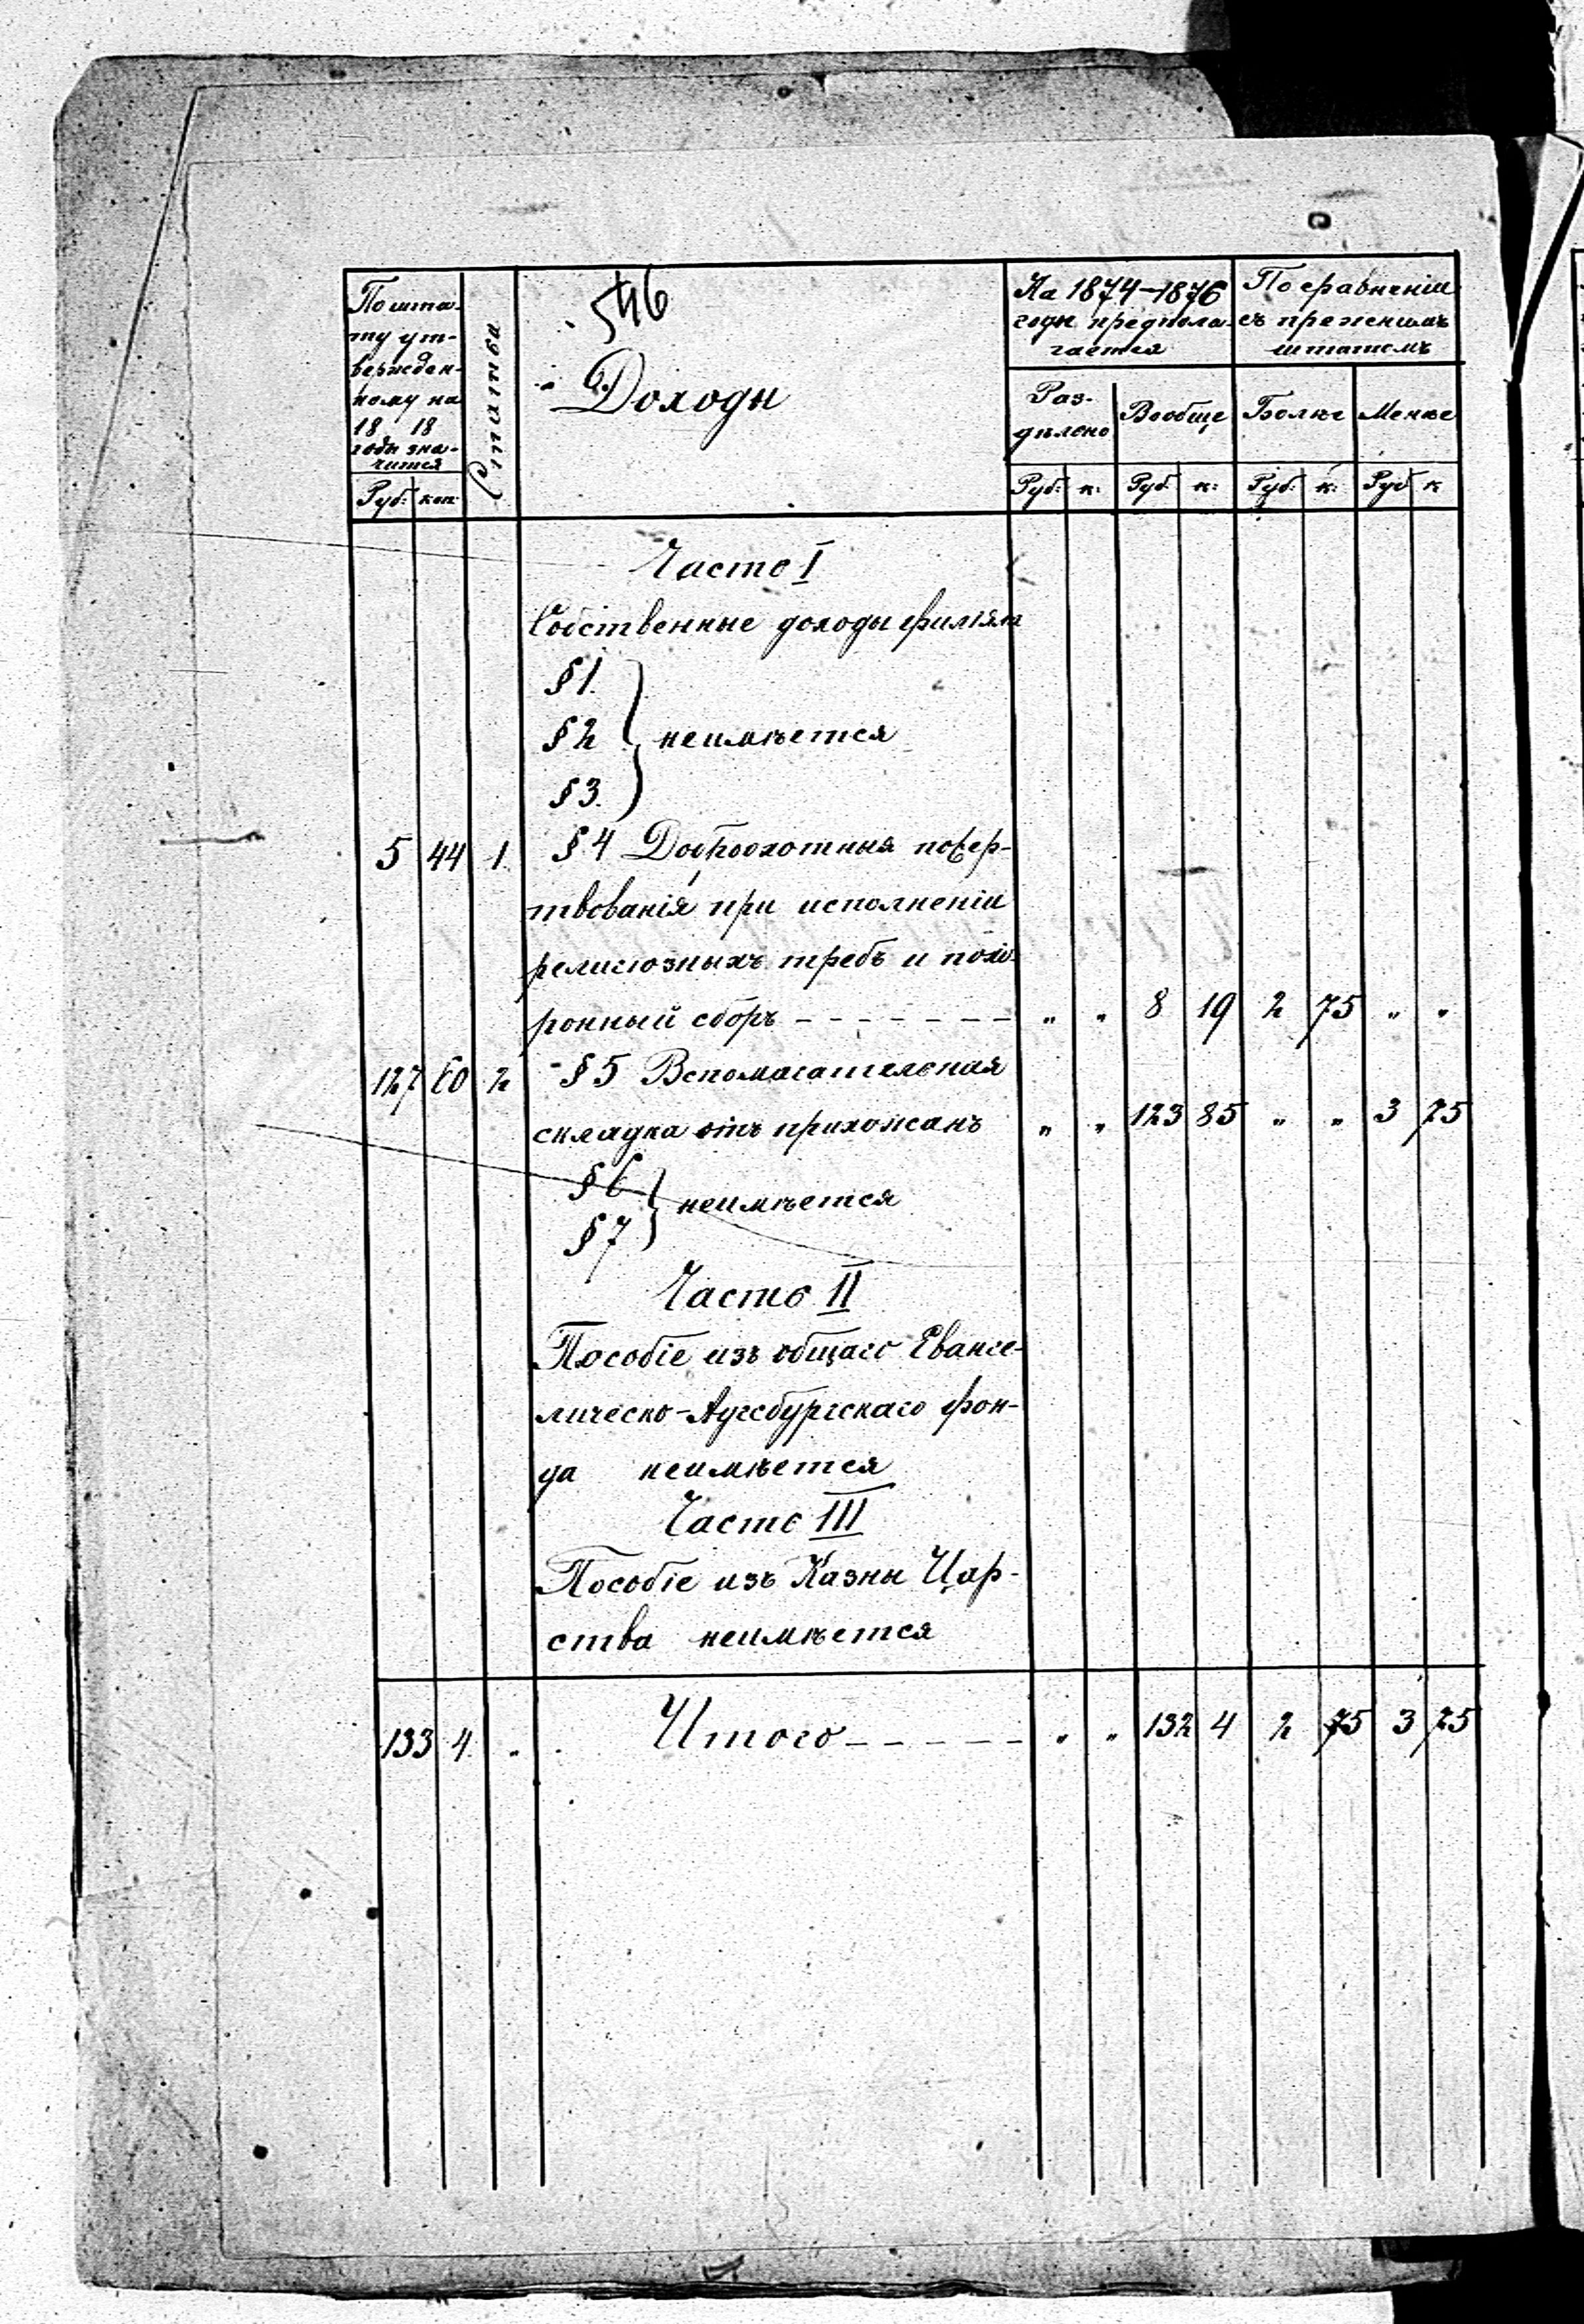 546
По шта-
ту ут-
вержден-
ному на
18 18
годы зна-
чится
Руб. коп.
Статьи
Доходы
На 1874–1876
годы предпола-
гается
Раз-
дѣлено
Вообще
По сравненiи
съ прежнимъ
штатомъ
Болѣе
Менѣе
Руб. к. Руб. к. Руб. к. Руб к
Часть I
Собственные доходы филiяла
§ 1.
§ 2 неимѣется
§ 3.
5 44 1. § 4 Доброохотныя пожер-
твованiя при исполненiи
религiозныхъ требъ и похо-
ронный сборъ - - - - - - - „ „ 8 19 2 75 „ „
127 60 2 § 5 Вспомагательная
складка отъ прихожанъ „ „ 123 85 „ „ 3 75
§ 6
§ 7 неимѣется
Часть II
Пособiе изъ общаго Еванге-
лическо-Аугсбургскаго фон-
да неимѣется
Часть III
Пособiе изъ Казны Цар-
ства неимѣется
133 4 „ Итого - - - - - „ „ 132 4 2 75 3 75